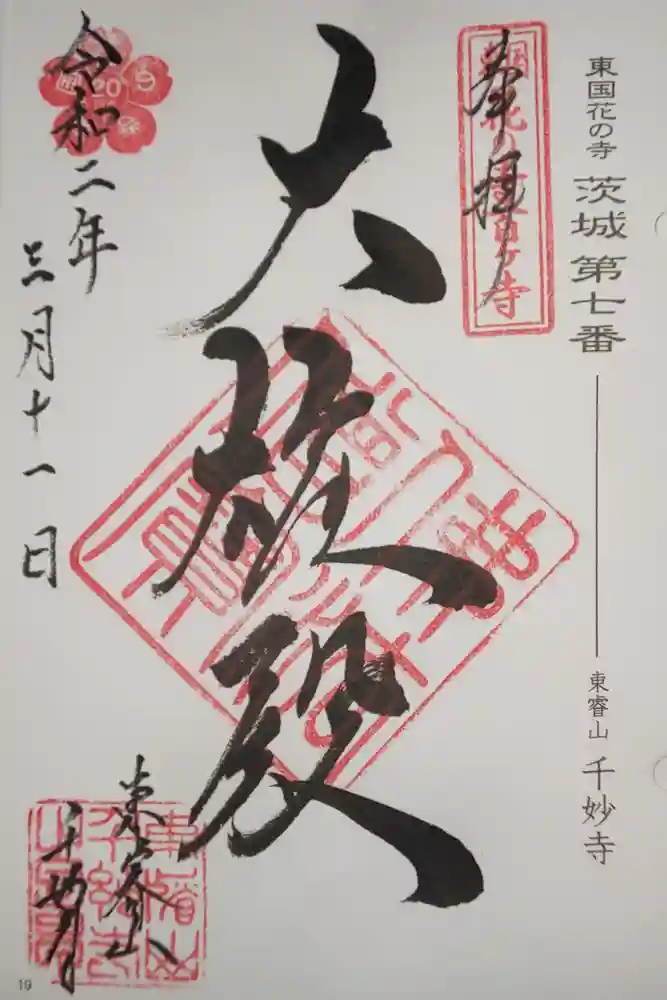 東国花の寺 茨城 第七番
東睿山 千妙寺
奉拝
大雄殿
令和二年
三月十一日
20
東睿山
千妙寺
東睿山
19